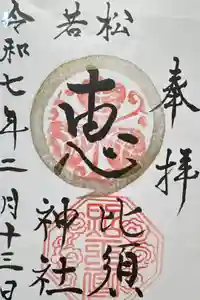 奉拝
若松
恵
比須
神社
令和七年二月十三日